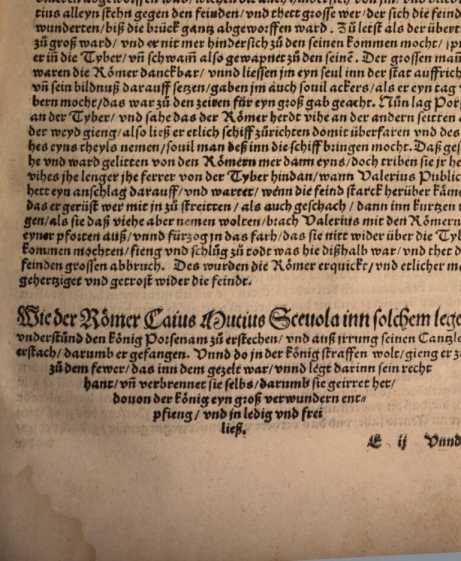 tius alleyn stehn gegen den feinden/vnd thett grosse wer/der sich die feind
wunderten/biß die brück gantz abgeworffen ward. Zů letst als der übert
zů groß ward/ vnd er nit mer hindersich zů den seinen kommen mocht/
er in die Tyber/ vñ schwam̃ also gewapnet zů den seinẽ. Der grossen
waren die Römer danckbar/ vnnd liessen jm eyn seul inn der stat auffrich
vñ sein bildnuß darauff setzen/gaben jm auch souil ackers/als er eyn tag
bern mocht/das war zů den zeiten für eyn groß gab geacht. Nůn lag Por
an der Tyber/ vnd sahe das der Römer herdt vihe an der andern seitten
der weyd gieng/also ließ er etlich schiff zůrichten domit überfaren vnd des
hes eyns theyls nemen/souil man deß inn die schiff bringen mocht. Daß ges
he vnd ward gelitten von den Römern mer dann eyns/doch triben sie jr he
vihes jhe lenger jhe ferrer von der Tyber hindan/wann Valerius Public
hett eyn anschlag darauff/vnd wartet/ wenn die feind starck herüber käme
das er gerüst wer mit in zů streitten/ als auch geschach/ dann inn kurtzen
gen/als sie daß viehe aber nemen wolten/brach Valerius mit den Römern
eyner pforten auß/vnnd fürzog jn das farh/das sie nitt wider über die Tyb
kommen mochten/fieng vnd schlůg zů todt was hie dißhalb war/vnd thet d
feinden grossen abbruch. Des wurden die Römer erquickt/vnd etlicher m
gehertziget vnd getrost wider die feindt.
Wie der Römer Caius Mucius Sceuola inn solchem lege
vnderstůnd den könig Porsenam zů erstechen/ vnd auß jrrung seinen Cantzle
erstach/darumb er gefangen. Vnnd do jn der könig straffen wolt/gieng er z
zů dem fewer/das inn dem gezelt war/vnnd légt darinn sein recht
hant/vñ verbrennet sie selbs/darumb sie geirret het/
douon der könig eyn groß verwundern ent=
pfieng/ vnd jn ledig vnd frei
ließ.
E ij Vnnd